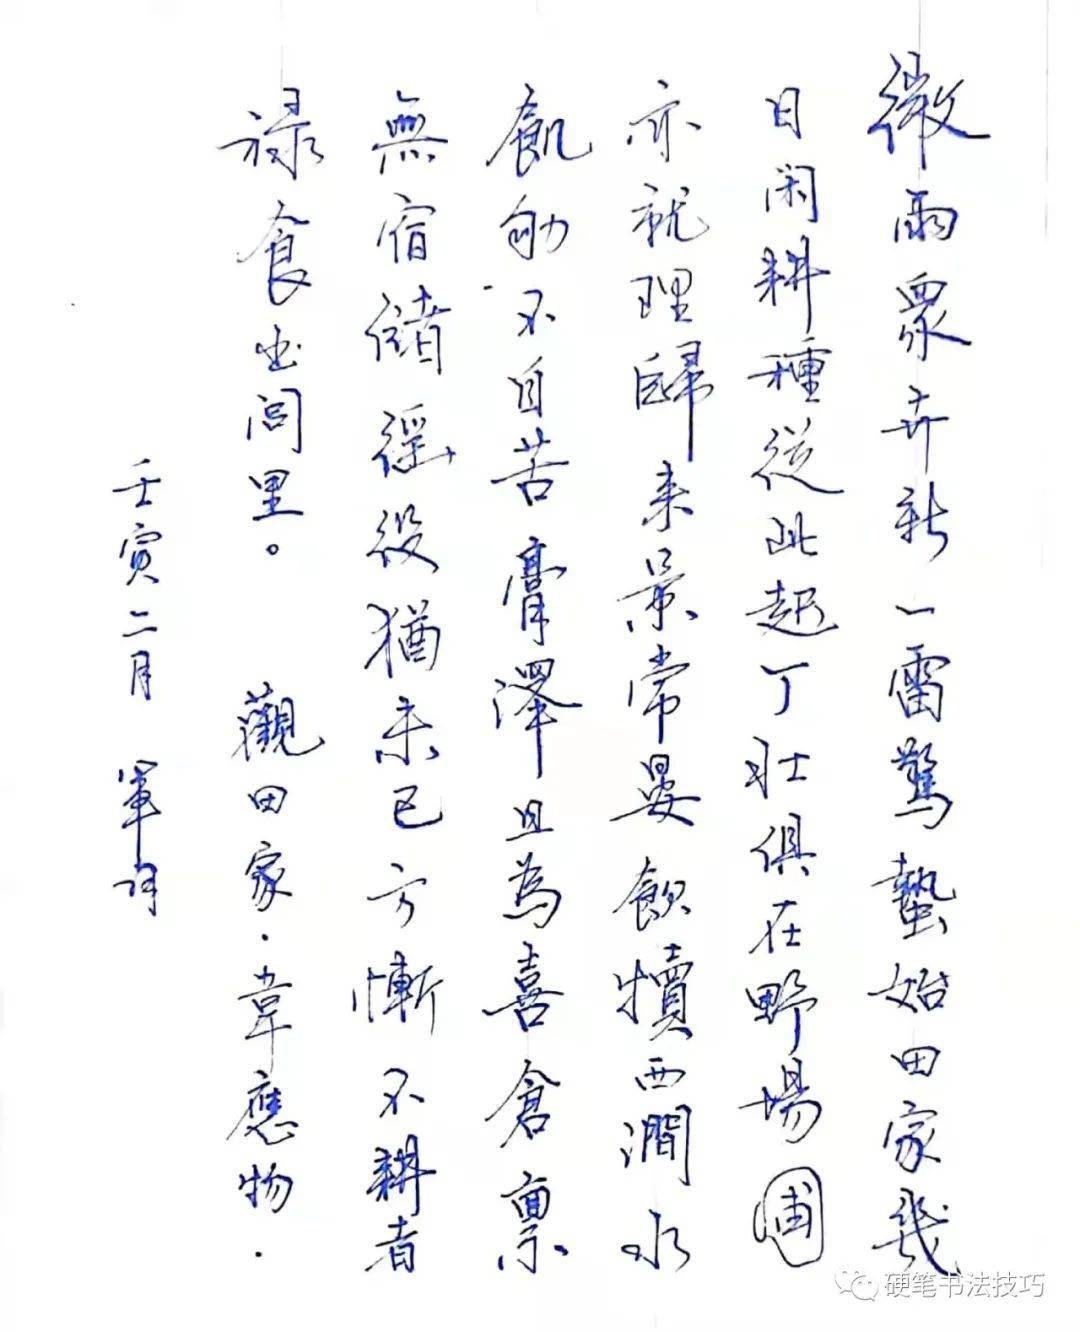 微雨眾卉新一雷驚蟄始田家幾
日闲耕種從此起丁壯俱在野場圃
亦就理歸来景常晏飲犢西澗水
飢劬不自苦膏澤且為喜倉禀
無宿储徭役猶未已方慚不耕者
禄食出闾里。 觀田家·韋應物·
壬寅二月 軍
硬笔书法技巧